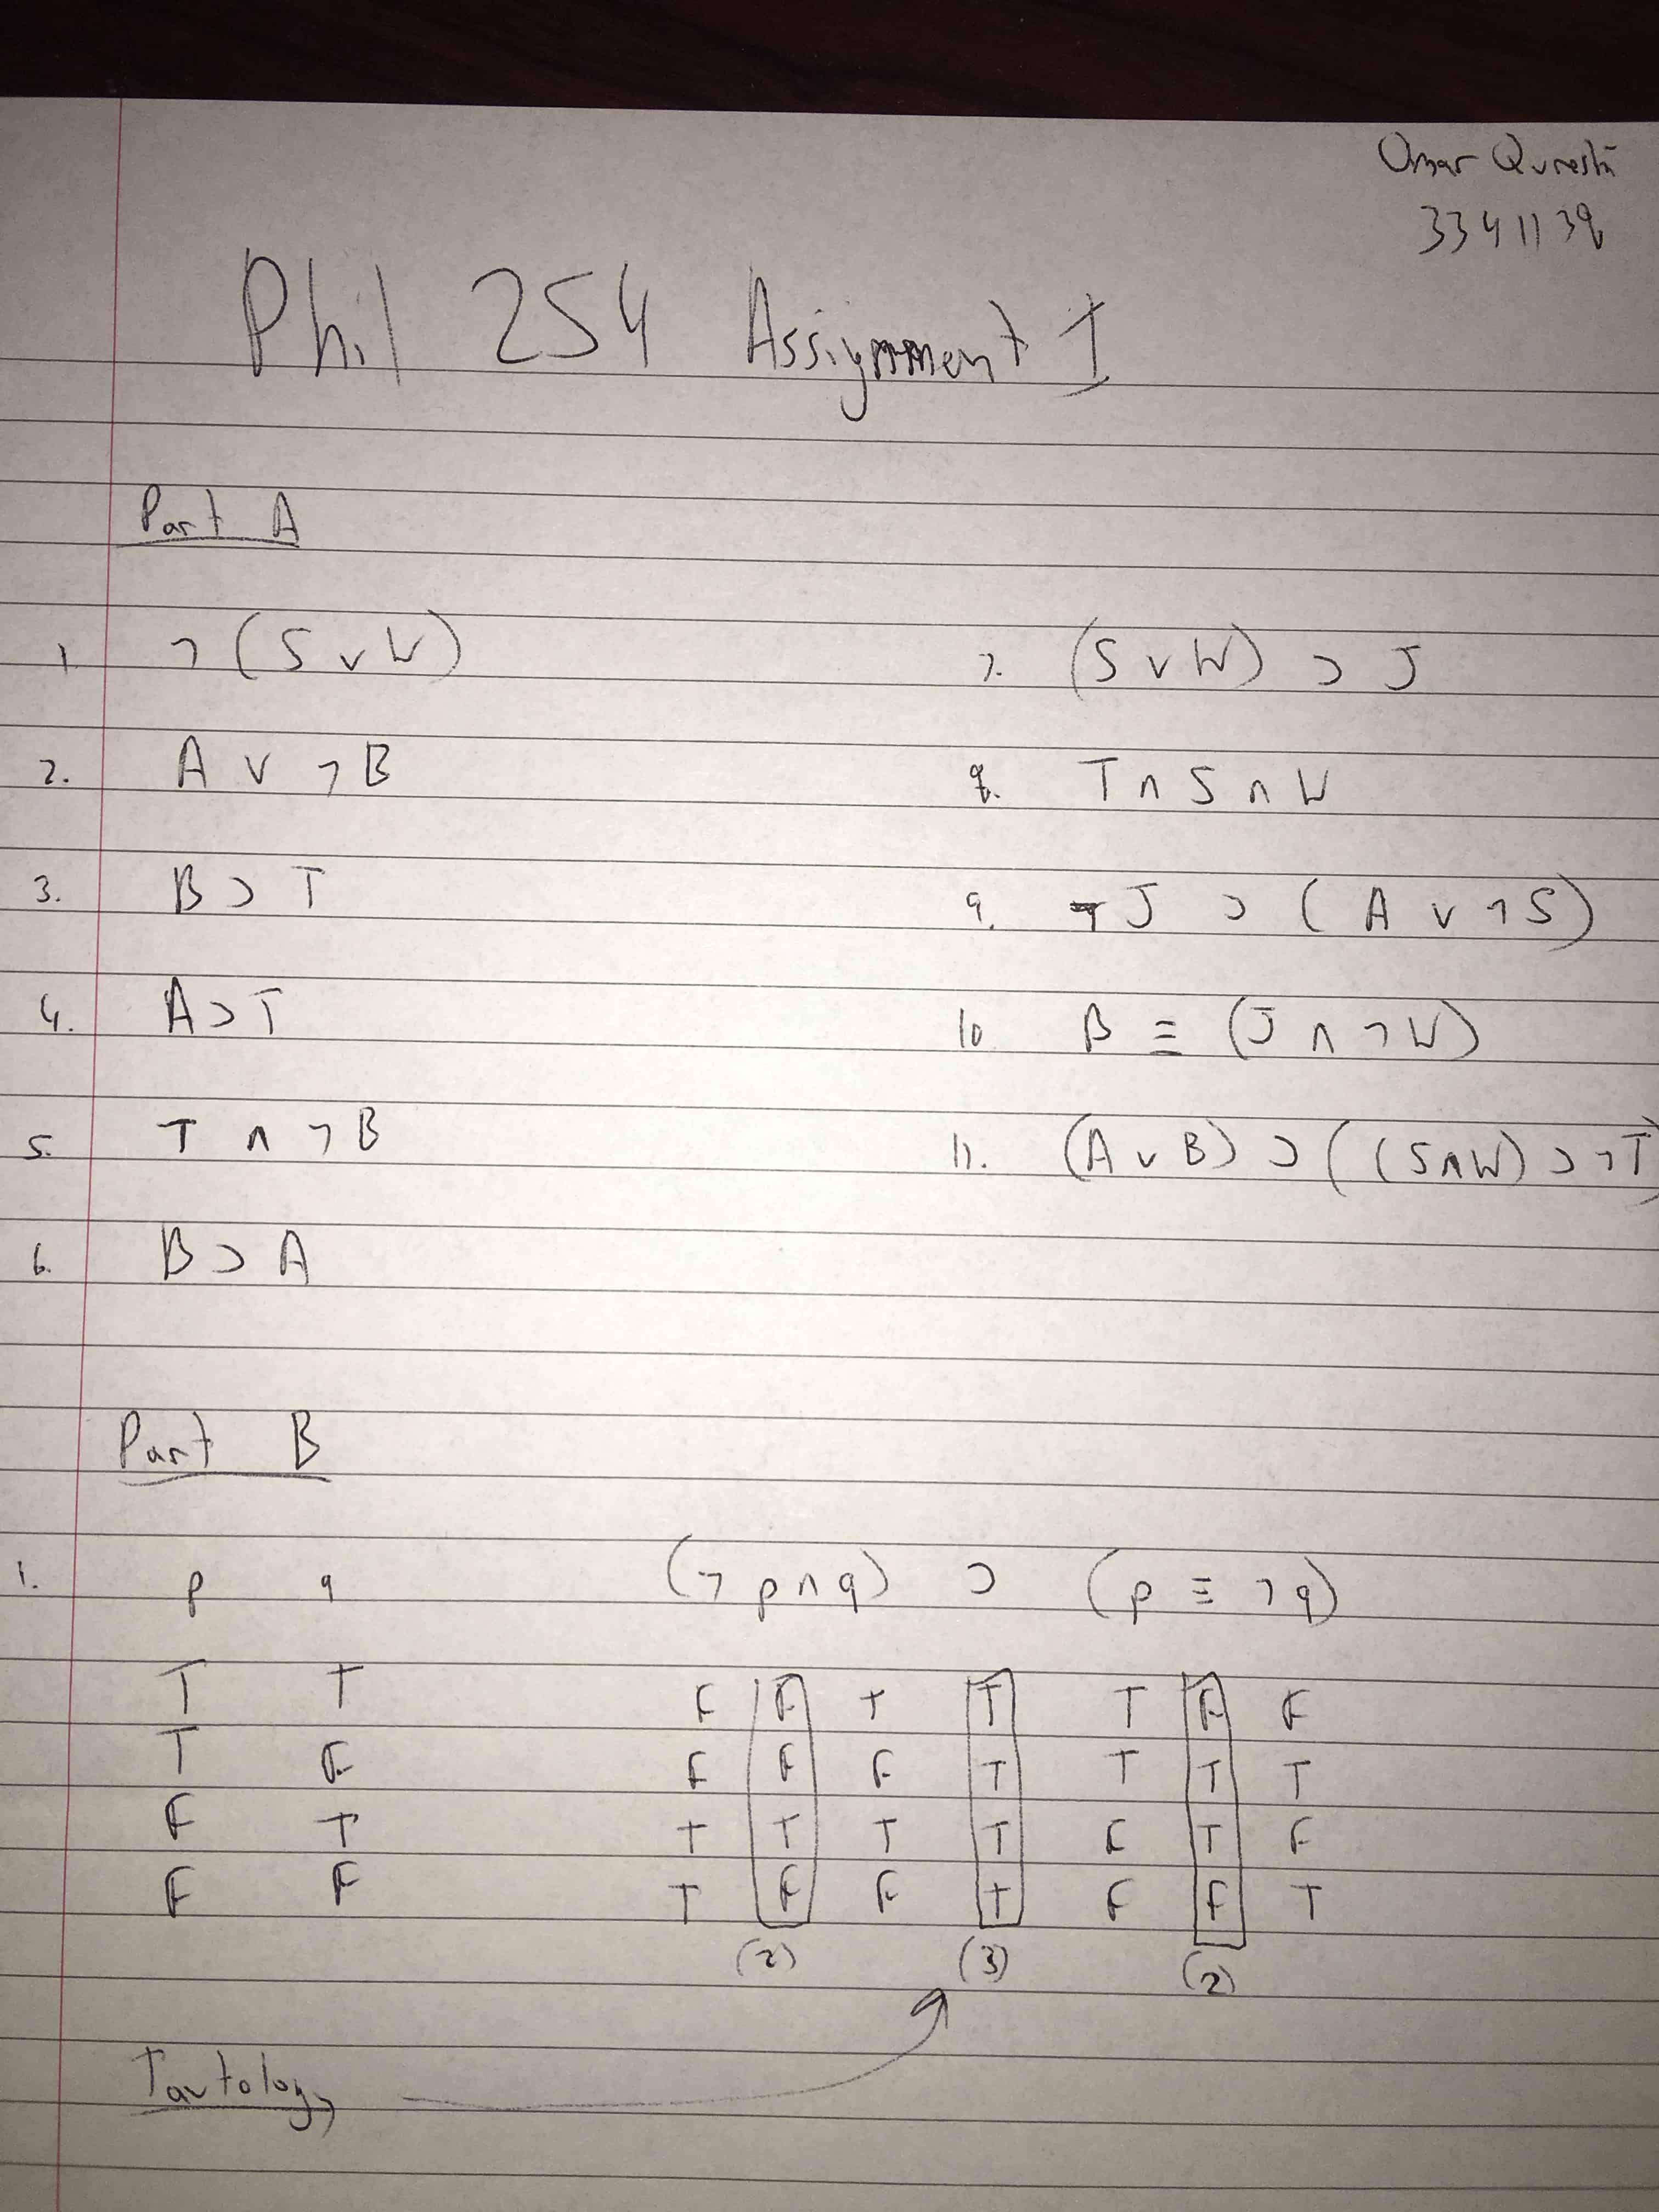 Omar Qureshi
33411138
Phil 254 Assignment 1
Part A
1. ¬(S ∨ W)
2. A ∨ ¬B
3. B ⊃ T
4. A ⊃ T
5. T ∧ ¬B
6. B ⊃ A
7. (S ∨ W) ⊃ J
8. T ∧ S ∧ W
9. ¬J ⊃ (A ∨ ¬S)
10 B ≡ (J ∧ ¬W)
11. (A ∨ B) ⊃ ((S ∧ W) ⊃ ¬T)
Part B
1. p q (¬p ∧ q) ⊃ (p ≡ ¬q)
T T F F T T T F F
T F F F F T T T T
F T T T T T F T F
F F T F F T F F T
(2) (3) (2)
Tautology